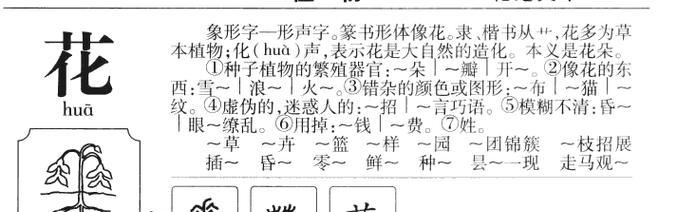 花
huā
象形字—形声字。篆书形体像花。隶、楷书从艹,花多为草
本植物;化(huà)声,表示花是大自然的造化。本义是花朵。
①种子植物的繁殖器官:~朵｜~瓣｜开~。②像花的东
西:雪~｜浪~｜火~。③错杂的颜色或图形:~布｜~猫｜~
纹。④虚伪的,迷惑人的:~招｜~言巧语。⑤模糊不清:昏~
｜眼~缭乱。⑥用掉:~钱｜~费。⑦姓。
~草 ~卉 ~篮 ~样 ~园 ~团锦簇 ~枝招展
插~ 昏~ 零~ 鲜~ 种~ 昙~一现 走马观~